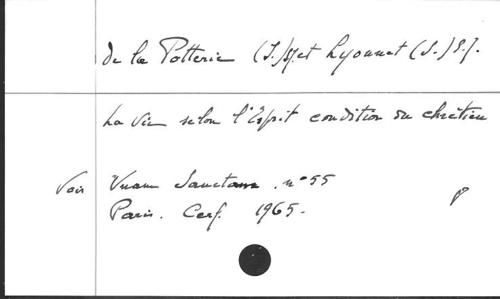 de la Potterie (I.) s.j. et Lyonnet (S.) S.J.
La vie selon l'Esprit condition du chrétien
Voir Unam Sanctam. n° 55
Paris. Cerf. 1965.